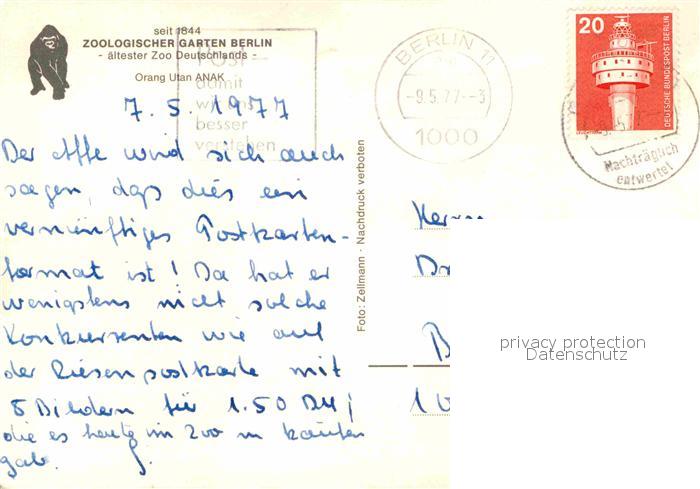 seit 1844
ZOOLOGISCHER GARTEN BERLIN
- ältester Zoo Deutschlands -
Orang Utan ANAK
Post -
damit
wir uns
besser
verstehen
BERLIN 11
-9.5.77.--3
1000
20
DEUTSCHE BUNDESPOST BERLIN
Nachträglich
entwertet
7.5.1977
Der Affe wird sich auch
sagen, daß dies ein
vernünftiges Postkarten-
format ist! Da hat er
wenigstens nicht solche
Konkurrenten wie auf
der Riesenpostkarte mit
8 Bildern für 1.50 DM,
die es heute im Zoo zu kaufen
gab.
Foto: Zellmann · Nachdruck verboten
Herrn
Dr
B
10
privacy protection
Datenschutz